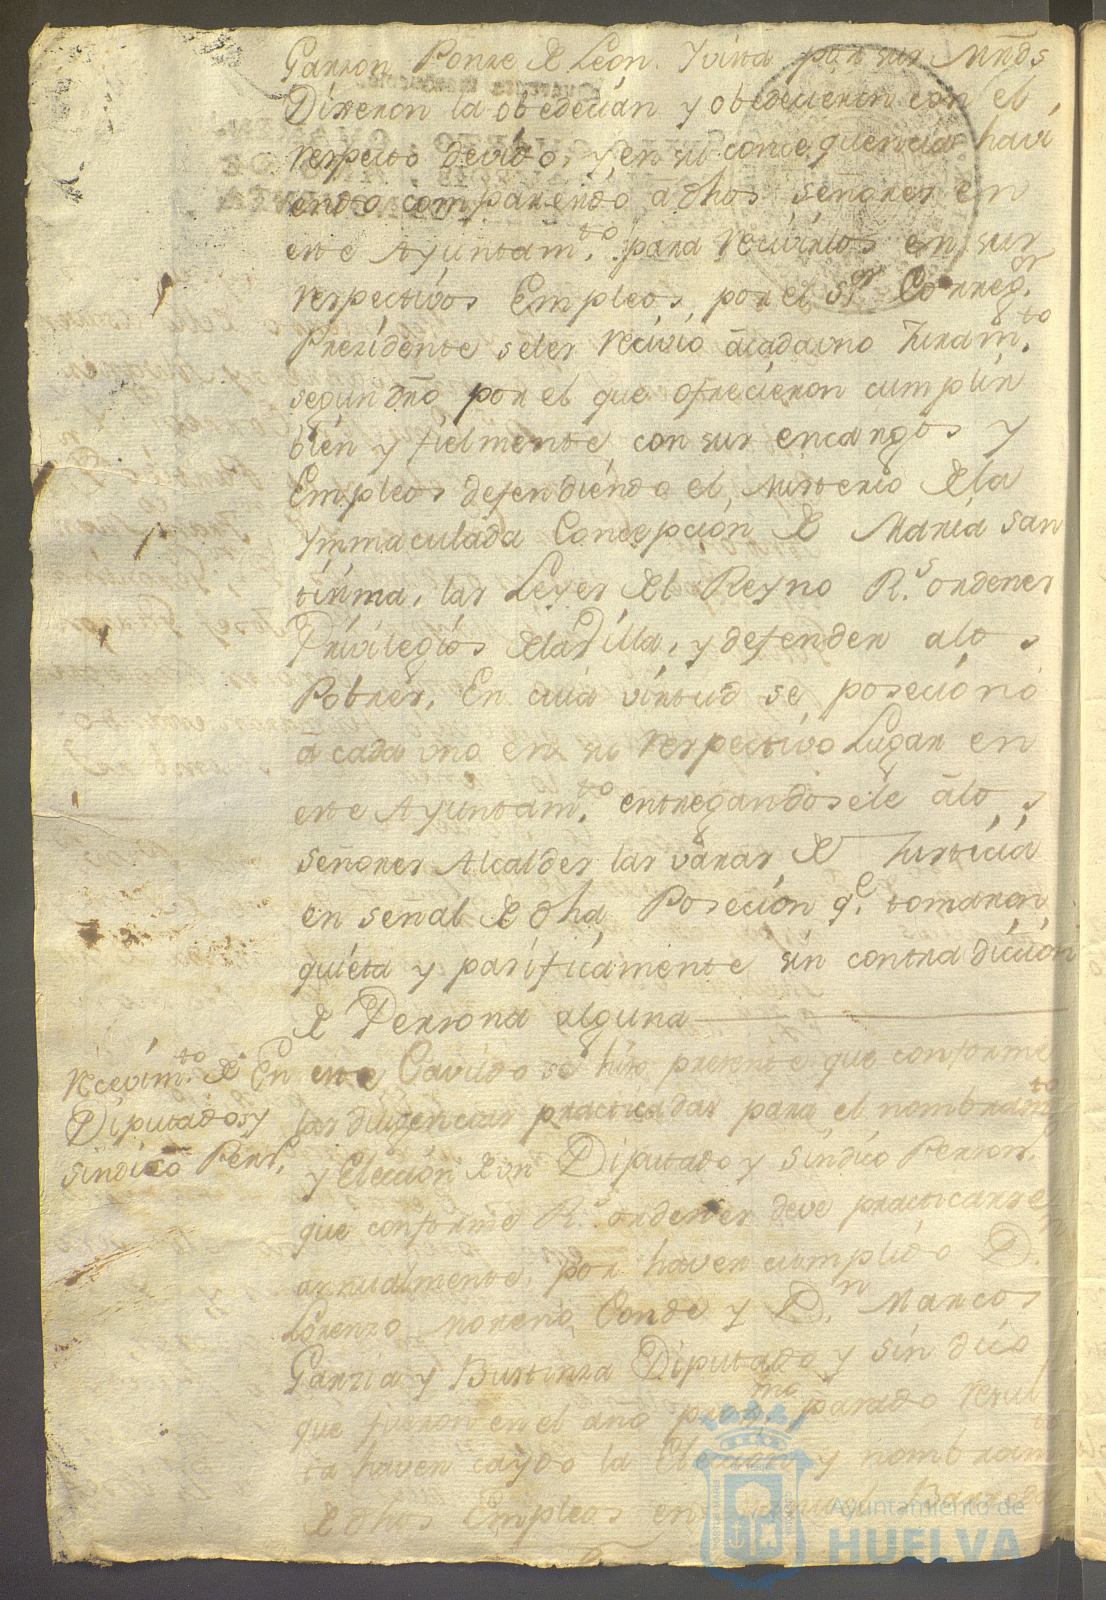 Garzon Ponze de Leon. Ivista por sus mrds
Dixeron la obedecian y obedecieron con el
respecto devido, y en su consequencia havi
endo comparendo a dhos señores en
este Ayuntam.to para recivirlos en sus
respectivos Empleos, por el S.or Correg.or
Presidente seles recivio a cada uno Juram.to
segun dro por el que ofrecieron cumplir
bien y fielmente con sus encargos y
Empleos defendiendo el Misterio de la
Ymmaculada Concepcion de Maria San
tisima, las Leyes del Reyno R.s ordenes
Privilegios dela Villa, y defender alos
Pobres, En cuia virtud se posecionó
a cada uno en su respectivo Lugar en
este Ayuntam.to entregandosele alos
señores Alcaldes las varas de Justicia
en señal de dha Poseción q.e tomaron
quieta y pasificamente sin contradicion
de Persona alguna
Recevim.to de
Diputados y
Sindico Pers.o
En este Cavildo se hizo presente que conforme
las diligencias practicadas para el nombram.to
y Eleccion de un Diputado y Sindico Person.
que conforme R.s ordenes deve practicarse
annualmente, por haver cumplido D.n
Lorenzo Moreno Conde y D.n Marcos
Garzia y Bustinza Diputado y Sindico
que fueron en el año prox.mo pasado resul
ta haver caydo la Eleccion y nombram.to
de dhos Empleos en
Ayuntamiento de
HUELVA